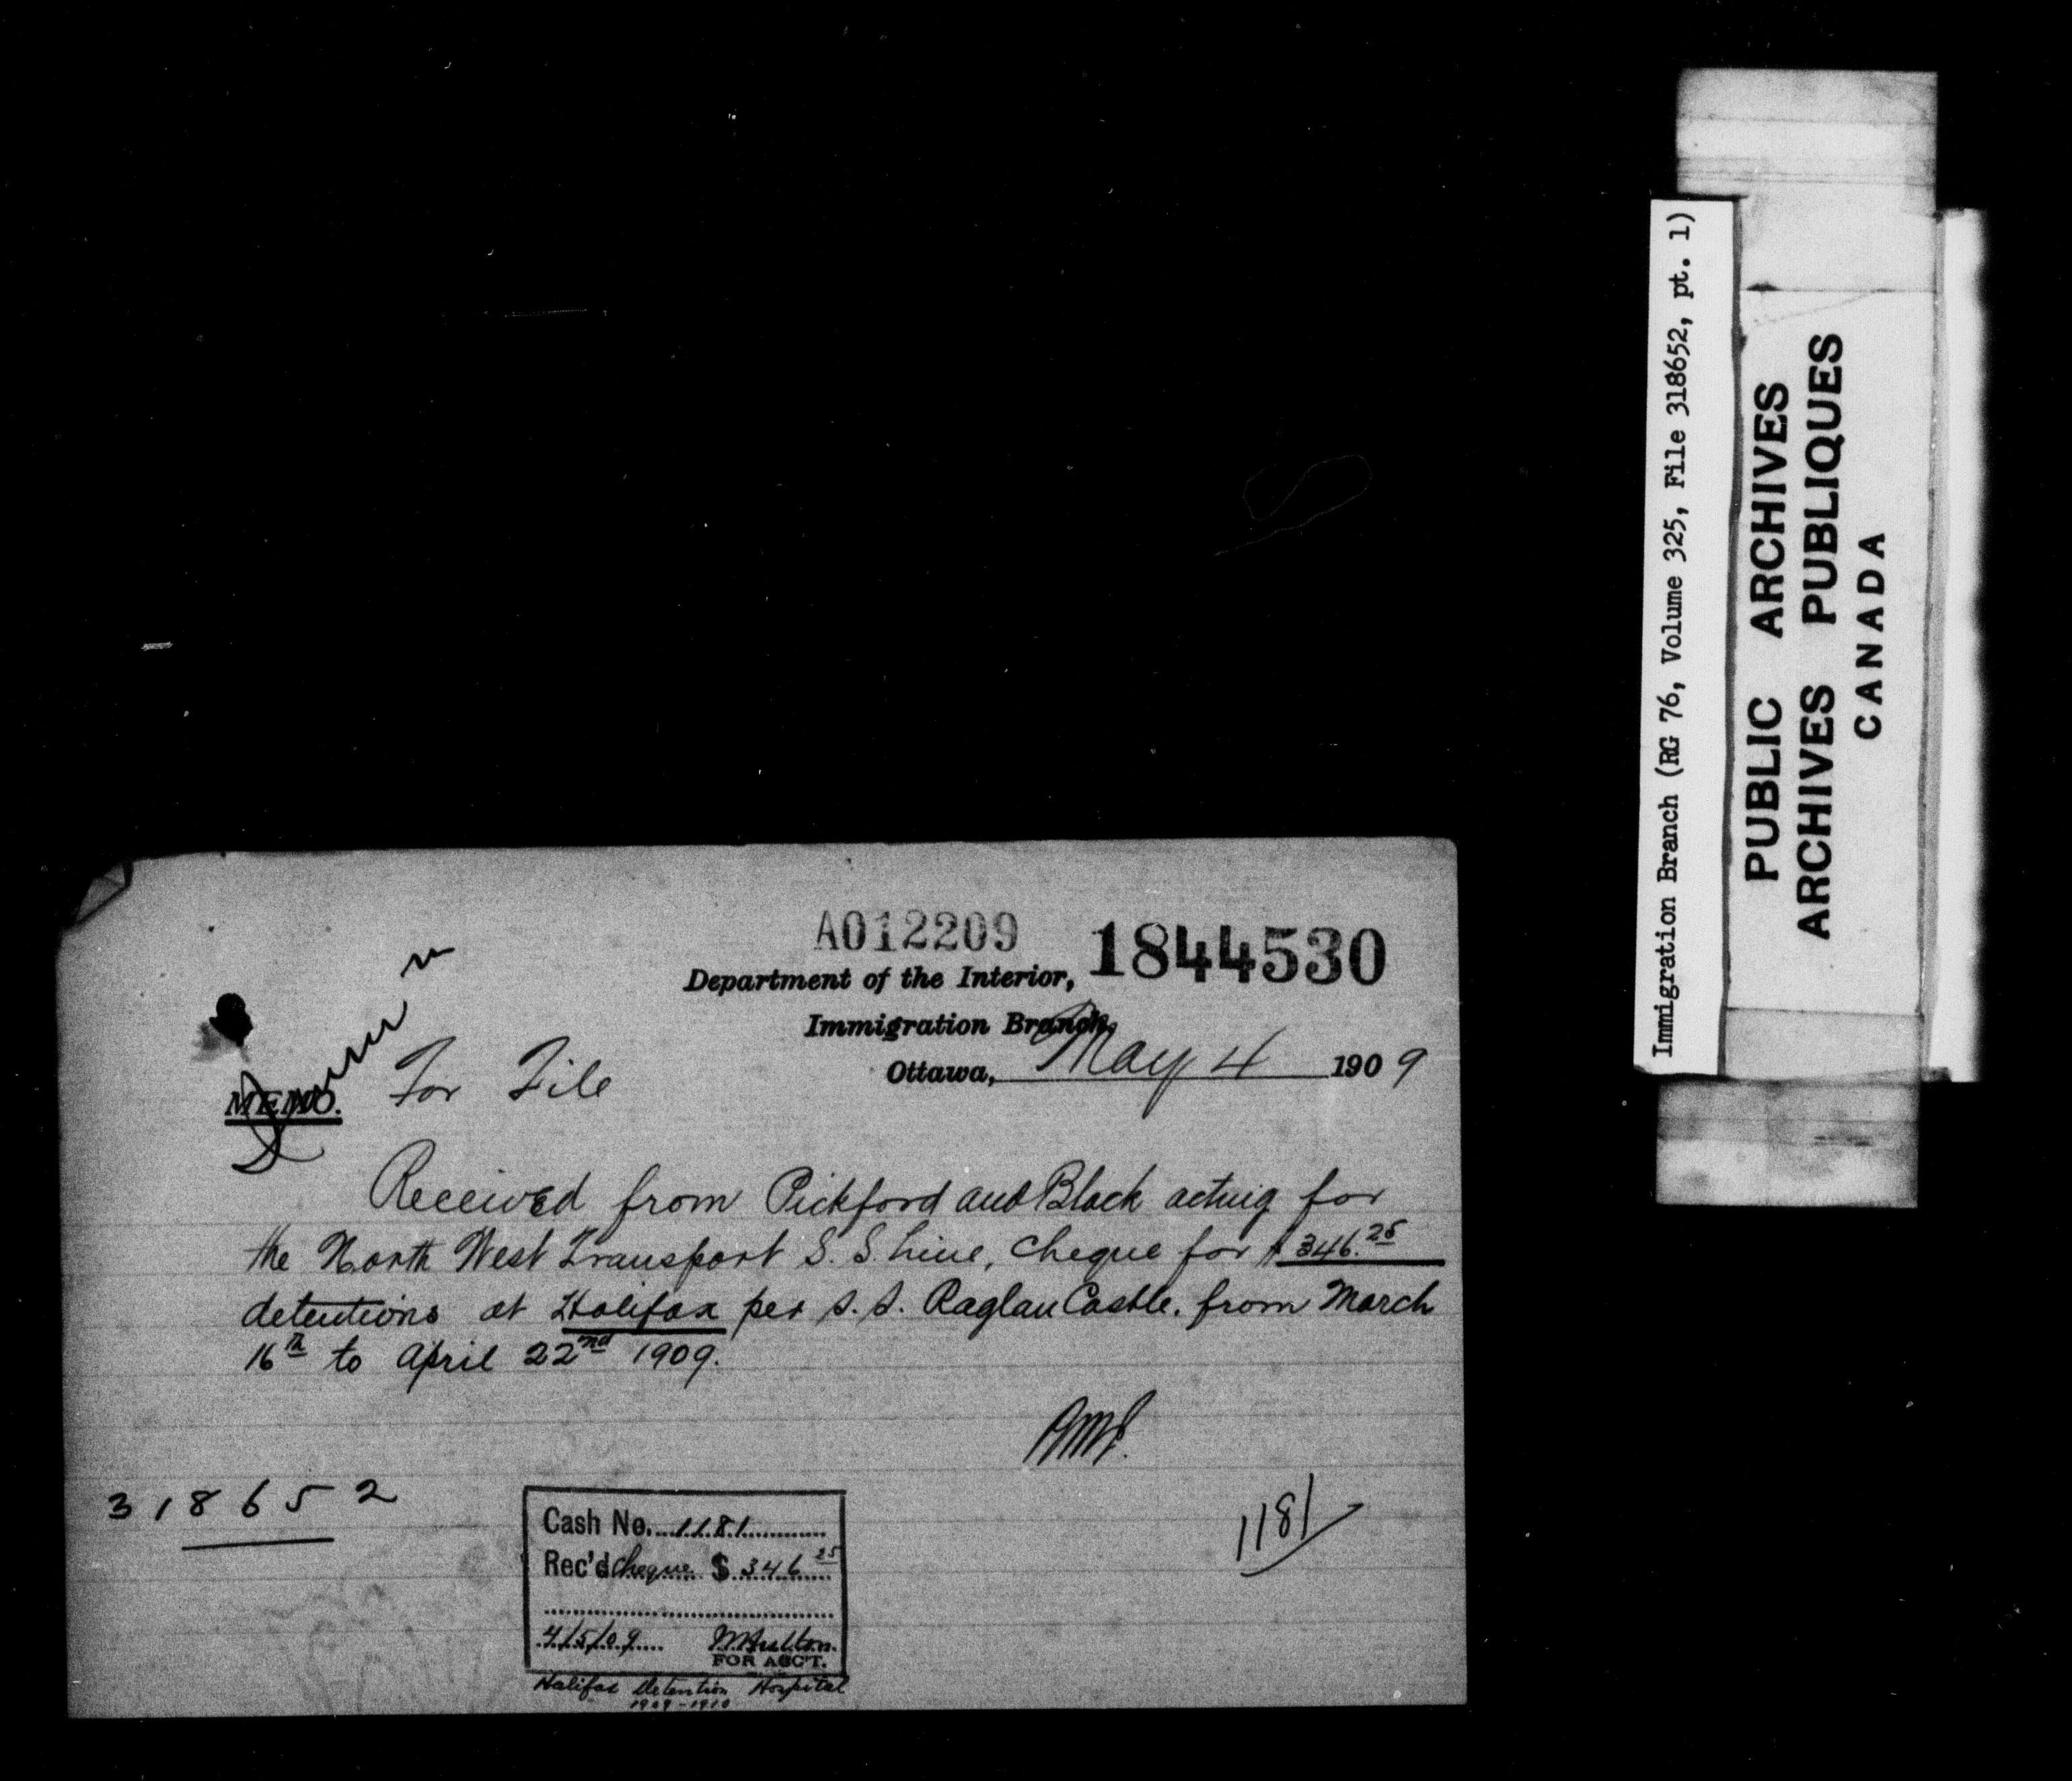 A012209
1844530
Department of the Interior,
Immigration Branch,
Ottawa, May 4 1909
MEMO. For File
Received from Pickford and Black acting for
the North West Transport S. S. Line, Cheque for $346.25
detentions at Halifax per S. S. Raglan Castle. from March
16th to April 22nd 1909.
318652
1181
Cash No. 1181
Rec'd Cheque $346 25
4/5/09
FOR ACC'T.
Halifax Detention Hospital
1909-1910
Immigration Branch (RG 76, Volume 325, File 318652, pt. 1)
PUBLIC ARCHIVES
ARCHIVES PUBLIQUES
CANADA